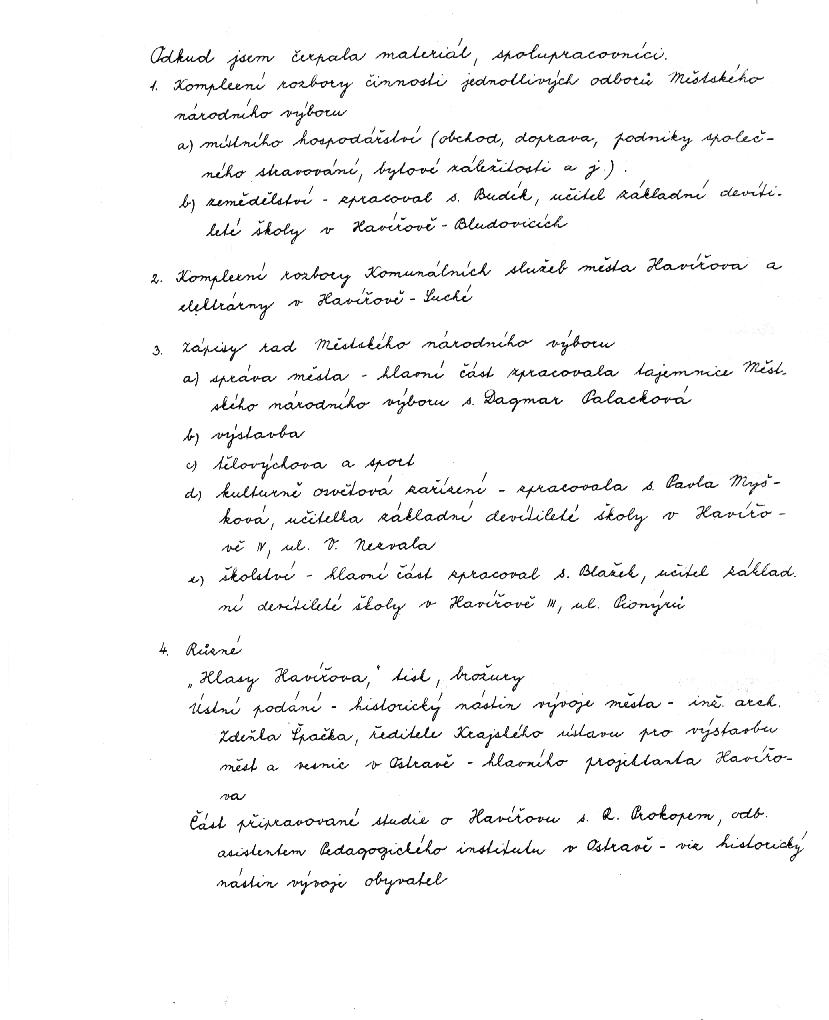 Odkud jsem čerpala materiál, spolupracovníci.
1. Komplexní rozbory činnosti jednotlivých odborů Městského
národního výboru
a) místního hospodářství (obchod, doprava, podniky společ-
ného stravování, bytové záležitosti a j.).
b) zemědělství - zpracoval s. Budík, učitel základní devíti-
leté školy v Havířově - Bludovicích
2. Komplexní rozbory Komunálních služeb města Havířova a
elektrárny v Havířově - Suché
3. Zápisy rad Městského národního výboru
a) správa města - hlavní část zpracovala tajemnice Měst-
ského národního výboru s. Dagmar Palacková
b) výstavba
c) tělovýchova a sport
d) kulturně osvětová zařízení - zpracovala s. Pavla Myš-
ková, učitelka základní devítileté školy v Havířo-
vě IV, ul. V. Nezvala
e) školství - hlavní část zpracoval s. Blažek, učitel základ-
ní devítileté školy v Havířově III, ul. Pionýrů
4. Různé
„Hlasy Havířova," tisk, brožury
Ústní podání - historický nástin vývoje města - inž. arch.
Zdeňka Špačka, ředitele Krajského ústavu pro výstavbu
měst a vesnic v Ostravě - hlavního projektanta Havířo-
va
Část připravované studie o Havířovu s. R. Prokopem, odb.
asistentem Pedagogického institutu v Ostravě - viz historický
nástin vývoje obyvatel